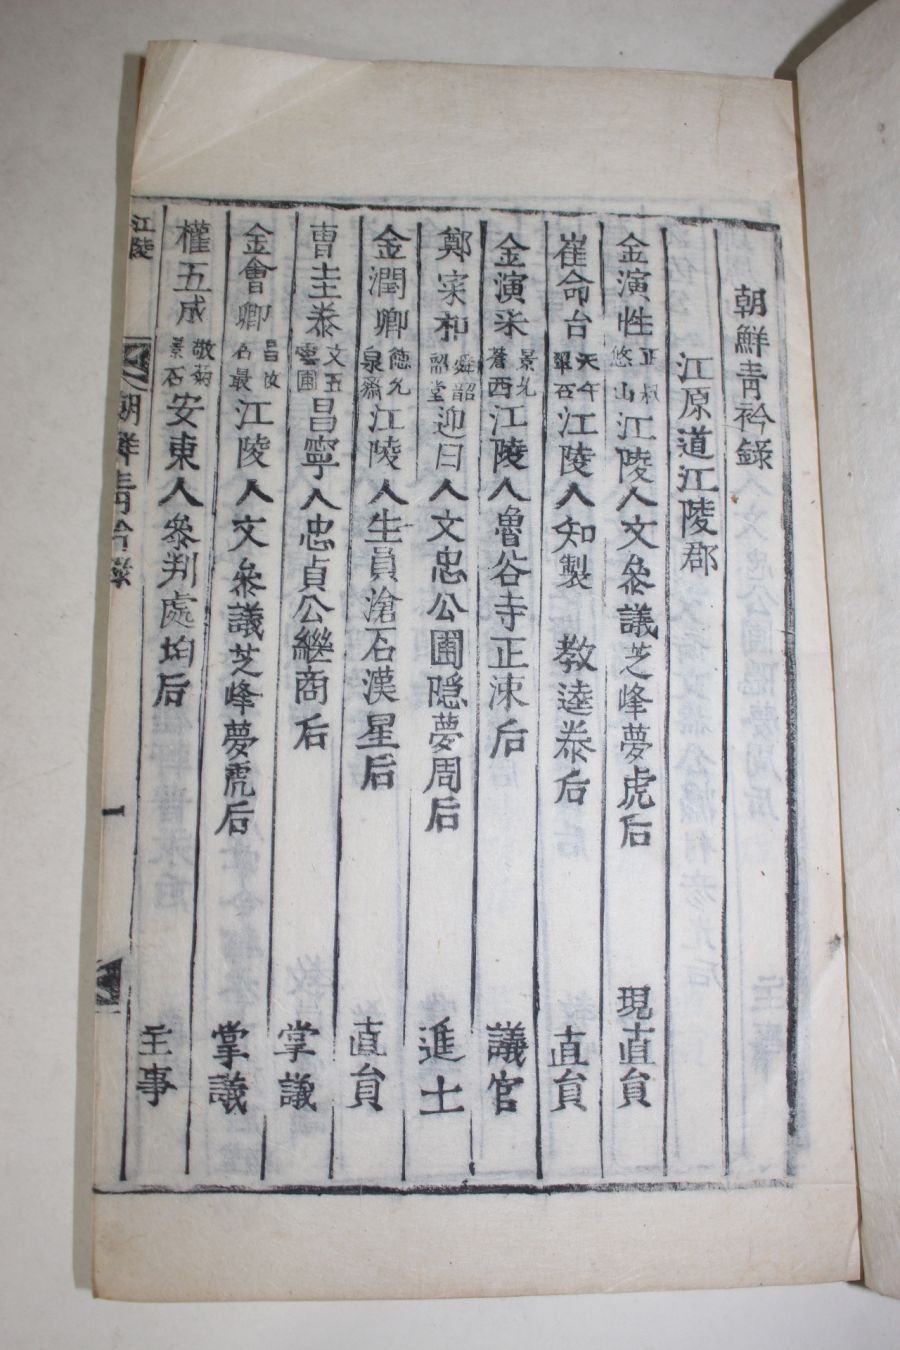 朝鮮靑衿錄
江原道江陵郡
金演性 正叔 悠山 江陵人文叅議芝峰夢虎后 現直員
崔命台 天午 翠石 江陵人知製 敎逵泰后 直員
金演采 景允 蒼西 江陵人魯谷寺正涑后 議官
鄭宋和 舜韶 韶堂 迎日人文忠公圃隱夢周后 進士
金潤卿 德允 泉齋 江陵人生員滄石漢星后 直員
曺圭泰 文五 雲圃 昌寧人忠貞公繼商后 掌議
金會卿 石最 江陵人文叅議芝峰夢虎后 掌議
權五成 敬弼 景石 安東人叅判處均后 主事
江陵
朝鮮靑衿錄
一